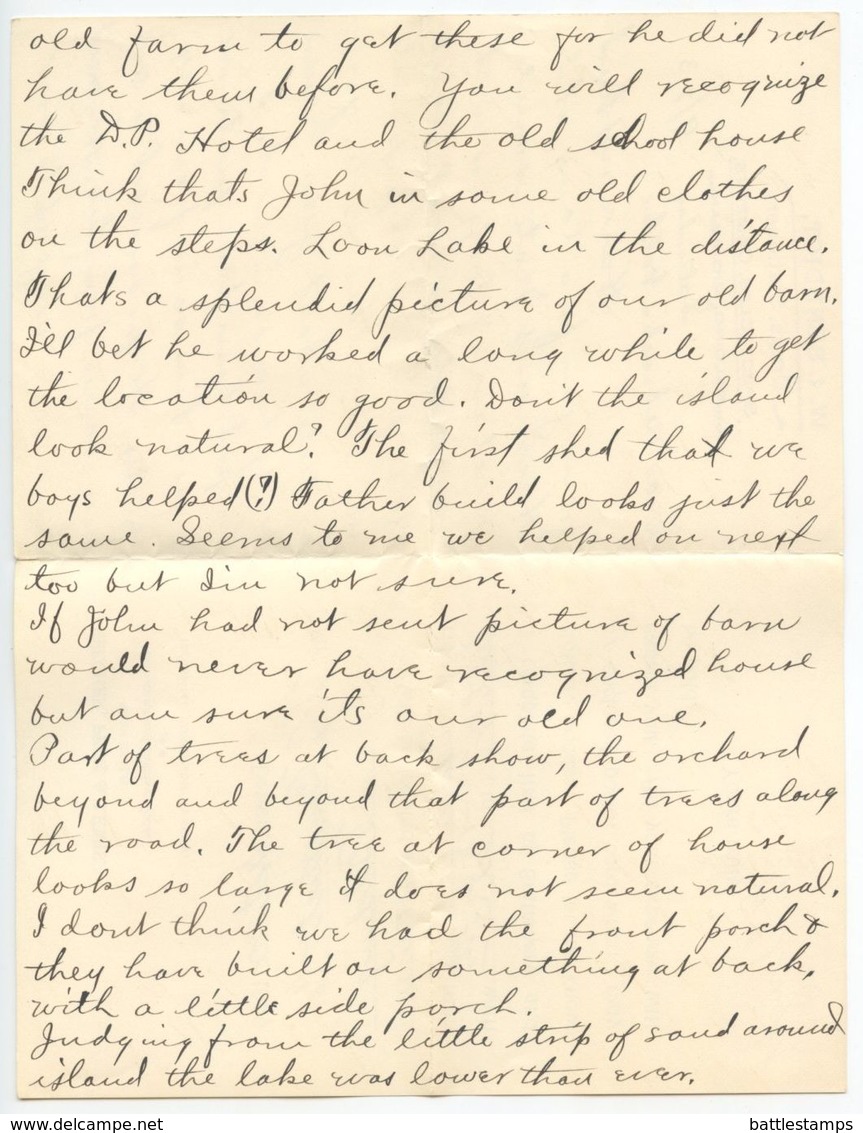 old farm to get these for he did not
have them before. You will recognize
the D.P. Hotel and the old school house
Think thats John in some old clothes
on the steps. Loon Lake in the distance.
Thats a splendid picture of our old barn.
I'll bet he worked a long while to get
the location so good. Don't the island
look natural? The first shed that we
boys helped (?) Father build looks just the
same. Seems to me we helped on next
too but I'm not sure.
If John had not sent picture of barn
would never have recognized house
but am sure its our old one.
Part of trees at back show, the orchard
beyond and beyond that part of trees along
the road. The tree at corner of house
looks so large it does not seem natural.
I dont think we had the front porch &
they have built on something at back,
with a little side porch.
Judging from the little strip of sand around
island the lake was lower than ever.
delcampe.net
battlestamps